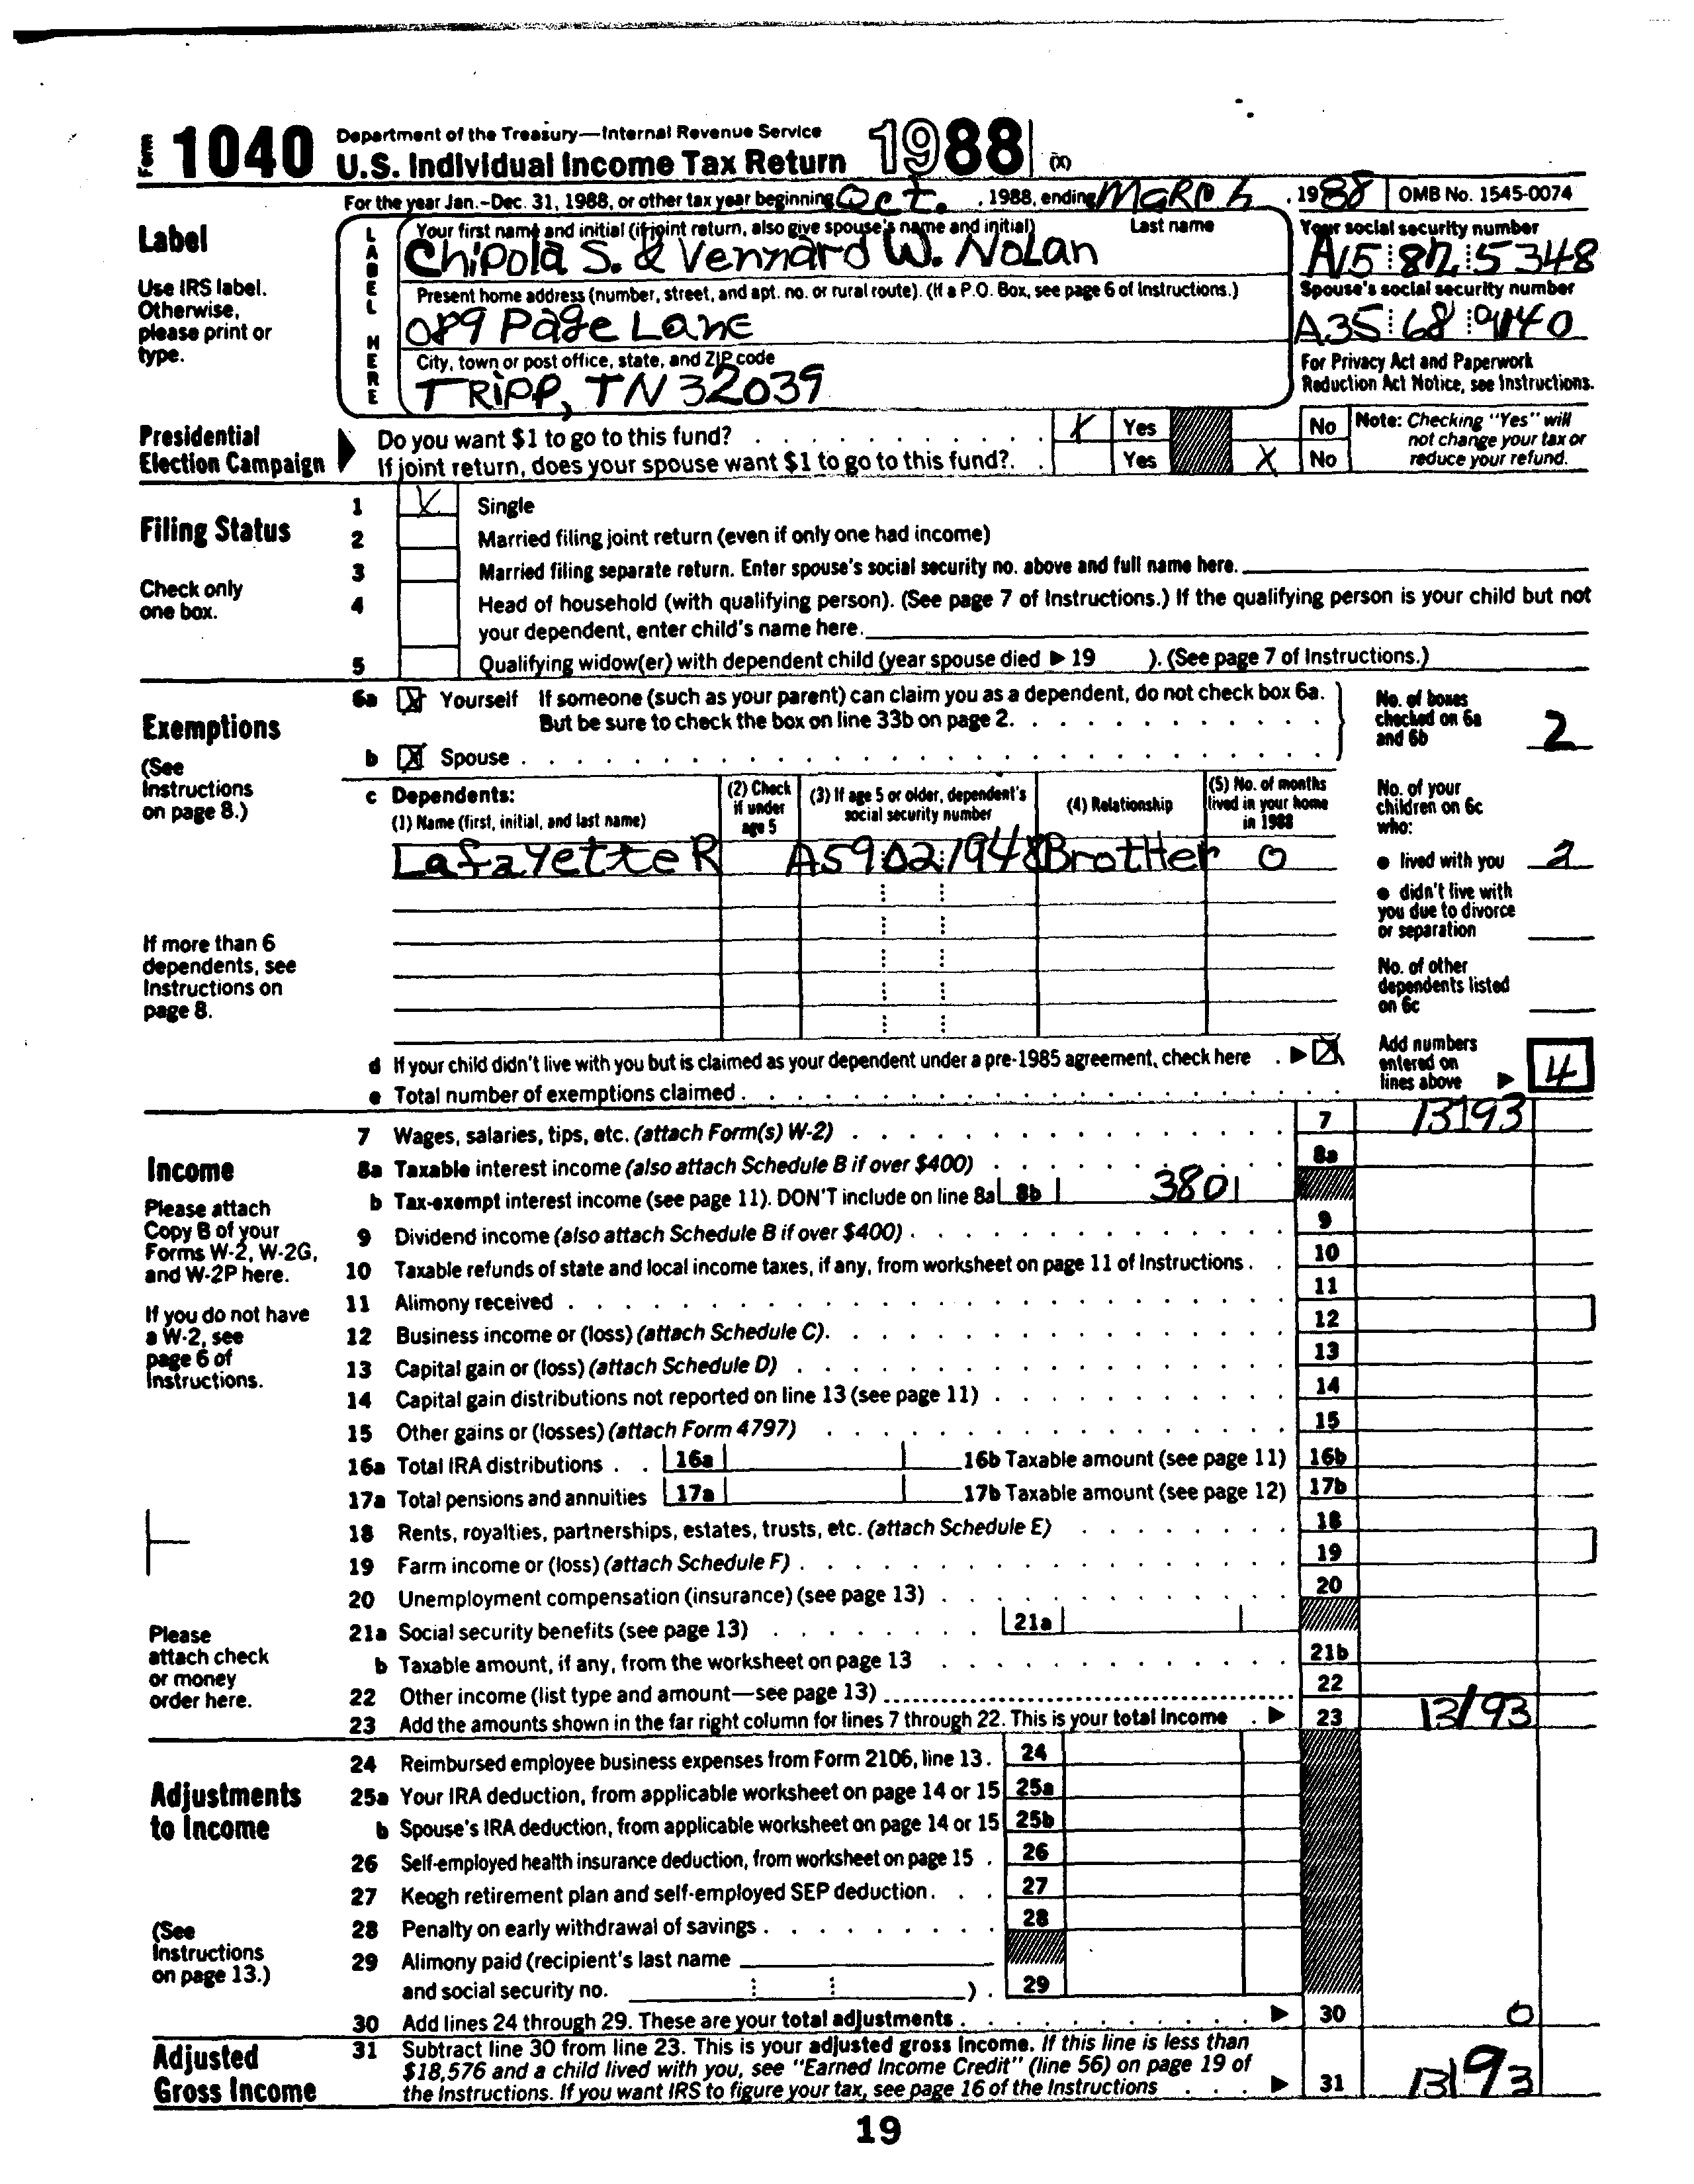 Form 1040 Department of the Treasury—Internal Revenue Service
U.S. Individual Income Tax Return 1988 (X)
For the year Jan.-Dec. 31, 1988, or other tax year beginning Oct. , 1988, ending March , 1988 OMB No. 1545-0074
Label
Use IRS label.
Otherwise,
please print or
type.
LABEL HERE
Your first name and initial (if joint return, also give spouse's name and initial) Last name
Chipola S. & Vennard W. Nolan
Your social security number
Present home address (number, street, and apt. no. or rural route). (If a P.O. Box, see page 6 of Instructions.)
089 Page Lane
Spouse's social security number
City, town or post office, state, and ZIP code
TRipp, TN 32039
For Privacy Act and Paperwork
Reduction Act Notice, see Instructions.
Presidential
Election Campaign
Do you want $1 to go to this fund? X Yes No
If joint return, does your spouse want $1 to go to this fund? Yes X No
Note: Checking "Yes" will
not change your tax or
reduce your refund.
Filing Status
Check only
one box.
1 X Single
2 Married filing joint return (even if only one had income)
3 Married filing separate return. Enter spouse's social security no. above and full name here.
4 Head of household (with qualifying person). (See page 7 of Instructions.) If the qualifying person is your child but not
your dependent, enter child's name here.
5 Qualifying widow(er) with dependent child (year spouse died ▶ 19 ). (See page 7 of Instructions.)
Exemptions
(See
Instructions
on page 8.)
6a X Yourself If someone (such as your parent) can claim you as a dependent, do not check box 6a.
But be sure to check the box on line 33b on page 2.
b X Spouse
No. of boxes
checked on 6a
and 6b 2
c Dependents:
(1) Name (first, initial, and last name)
(2) Check
if under
age 5
(3) If age 5 or older, dependent's
social security number
(4) Relationship
(5) No. of months
lived in your home
in 1988
Lafayette R A59 02 1948 Brother 0
If more than 6
dependents, see
Instructions on
page 8.
No. of your
children on 6c
who:
● lived with you 2
● didn't live with
you due to divorce
or separation
No. of other
dependents listed
on 6c
d If your child didn't live with you but is claimed as your dependent under a pre-1985 agreement, check here ▶ X
e Total number of exemptions claimed
Add numbers
entered on
lines above ▶ 4
Income
Please attach
Copy B of your
Forms W-2, W-2G,
and W-2P here.
If you do not have
a W-2, see
page 6 of
Instructions.
Please
attach check
or money
order here.
7 Wages, salaries, tips, etc. (attach Form(s) W-2) 7 13193
8a Taxable interest income (also attach Schedule B if over $400) 8a
b Tax-exempt interest income (see page 11). DON'T include on line 8a 8b 3801
9 Dividend income (also attach Schedule B if over $400) 9
10 Taxable refunds of state and local income taxes, if any, from worksheet on page 11 of Instructions 10
11 Alimony received 11
12 Business income or (loss) (attach Schedule C) 12
13 Capital gain or (loss) (attach Schedule D) 13
14 Capital gain distributions not reported on line 13 (see page 11) 14
15 Other gains or (losses) (attach Form 4797) 15
16a Total IRA distributions 16a 16b Taxable amount (see page 11) 16b
17a Total pensions and annuities 17a 17b Taxable amount (see page 12) 17b
18 Rents, royalties, partnerships, estates, trusts, etc. (attach Schedule E) 18
19 Farm income or (loss) (attach Schedule F) 19
20 Unemployment compensation (insurance) (see page 13) 20
21a Social security benefits (see page 13) 21a
b Taxable amount, if any, from the worksheet on page 13 21b
22 Other income (list type and amount—see page 13) 22
23 Add the amounts shown in the far right column for lines 7 through 22. This is your total income ▶ 23 13193
Adjustments
to Income
(See
Instructions
on page 13.)
24 Reimbursed employee business expenses from Form 2106, line 13. 24
25a Your IRA deduction, from applicable worksheet on page 14 or 15 25a
b Spouse's IRA deduction, from applicable worksheet on page 14 or 15 25b
26 Self-employed health insurance deduction, from worksheet on page 15 26
27 Keogh retirement plan and self-employed SEP deduction 27
28 Penalty on early withdrawal of savings 28
29 Alimony paid (recipient's last name
and social security no. ) 29
30 Add lines 24 through 29. These are your total adjustments ▶ 30 0
Adjusted
Gross Income
31 Subtract line 30 from line 23. This is your adjusted gross income. If this line is less than
$18,576 and a child lived with you, see "Earned Income Credit" (line 56) on page 19 of
the Instructions. If you want IRS to figure your tax, see page 16 of the Instructions ▶ 31 13193
19